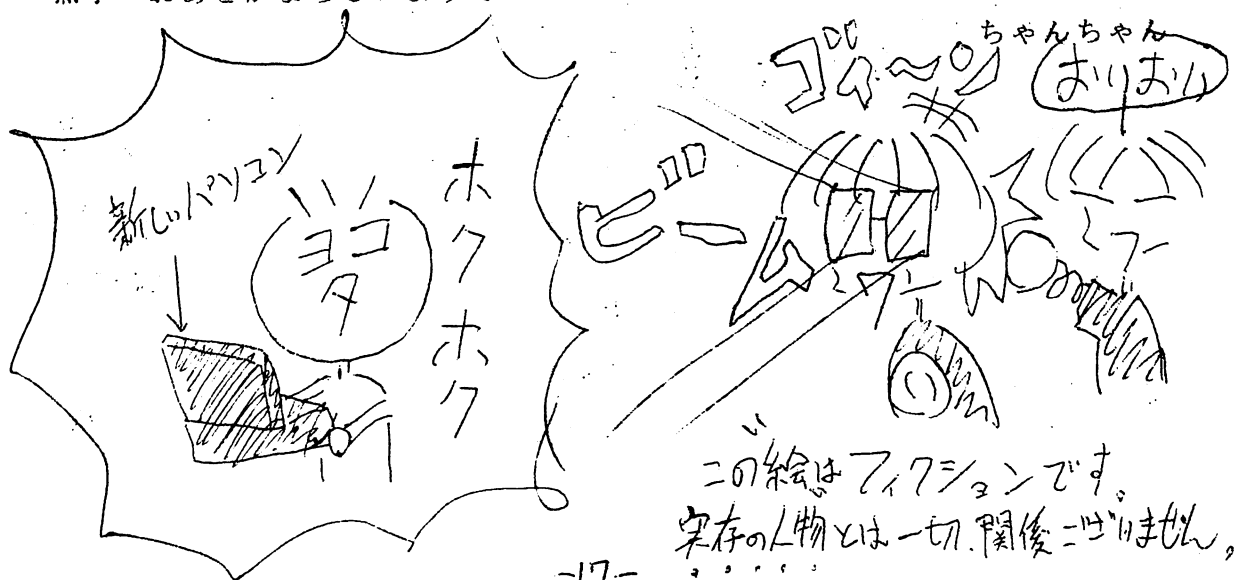 新しいパソコン
ヨコタ
ホクホク
ゴィ〜ン
ちゃんちゃん
おりおり
ビーム
この絵はフィクションです。
実存の人物とは一切、関係ございません。
-17-